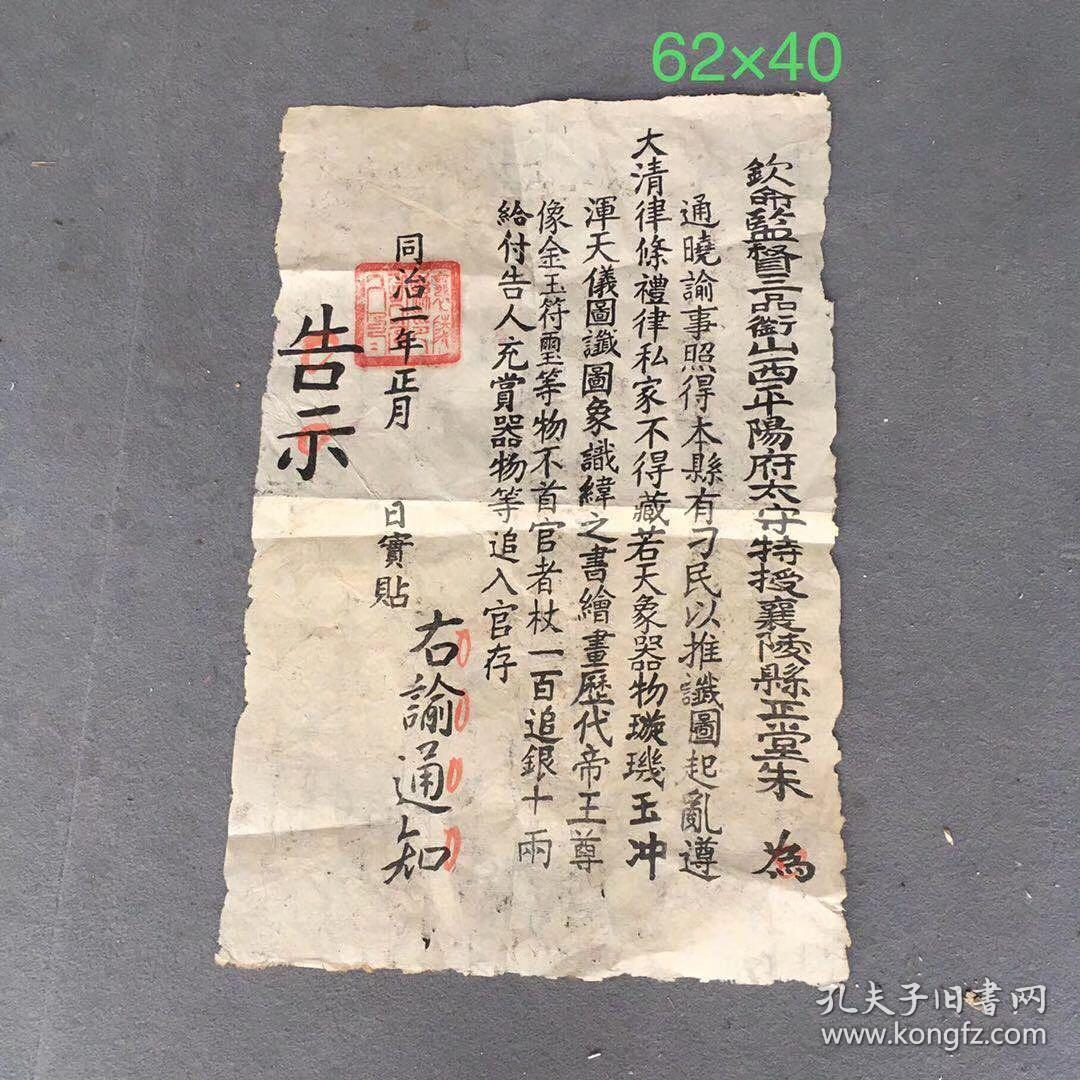 62×40
欽命監督三品銜山西平陽府太守特授襄陵縣正堂朱 為
通曉諭事照得本縣有刁民以推讖圖起亂遵
大清律條禮律私家不得藏若天象器物璇璣玉冲
渾天儀圖讖圖象識緯之書繪畫歷代帝王尊
像金玉符璽等物不首官者杖一百追銀十兩
給付告人充賞器物等追入官存
右諭通知
同治二年正月 日實貼
告示
孔夫子旧书网
www.kongfz.com